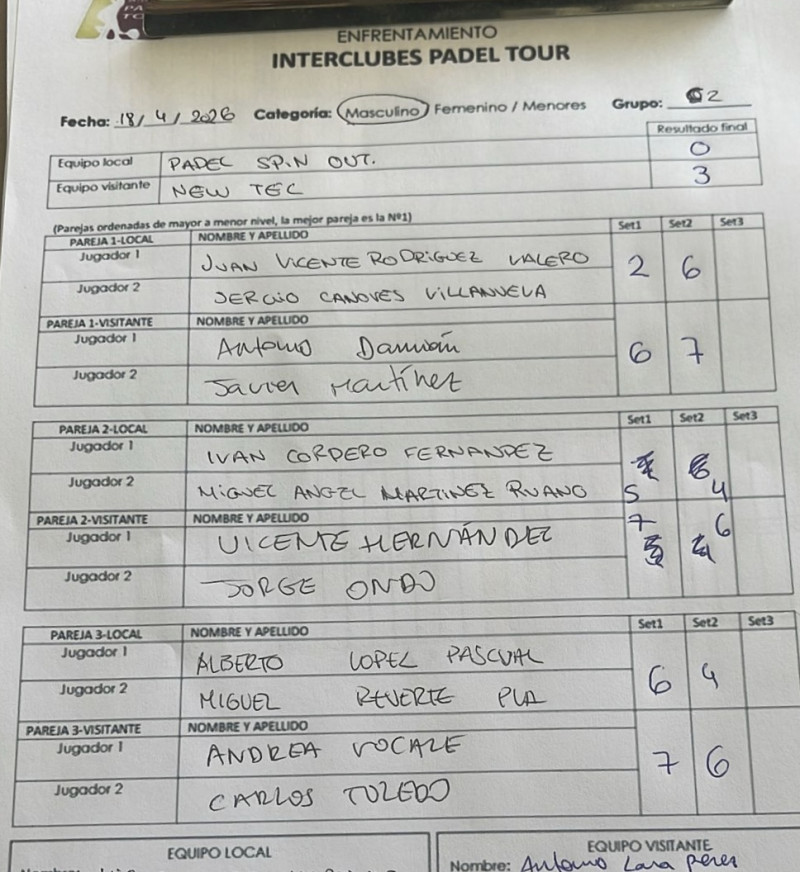 ENFRENTAMIENTO
INTERCLUBES PADEL TOUR
Fecha: 18/4/2026 Categoría: Masculino / Femenino / Menores Grupo: G2
Resultado final
Equipo local PADEL SPIN OUT. 0
Equipo visitante NEW TEC 3
(Parejas ordenadas de mayor a menor nivel, la mejor pareja es la Nº1)
PAREJA 1-LOCAL NOMBRE Y APELLIDO Set1 Set2 Set3
Jugador 1 JUAN VICENTE RODRIGUEZ VALERO 2 6
Jugador 2 SERGIO CANOVES VILLANUEVA
PAREJA 1-VISITANTE NOMBRE Y APELLIDO
Jugador 1 Antonio Damián 6 7
Jugador 2 Javier Martínez
PAREJA 2-LOCAL NOMBRE Y APELLIDO Set1 Set2 Set3
Jugador 1 IVAN CORDERO FERNANDEZ
Jugador 2 MIGUEL ANGEL MARTINEZ RUANO 5 4
PAREJA 2-VISITANTE NOMBRE Y APELLIDO 7 6
Jugador 1 VICENTE HERNÁNDEZ
Jugador 2 JORGE ONDO
PAREJA 3-LOCAL NOMBRE Y APELLIDO Set1 Set2 Set3
Jugador 1 ALBERTO LOPEZ PASCUAL 6 4
Jugador 2 MIGUEL REVERTE PLA
PAREJA 3-VISITANTE NOMBRE Y APELLIDO
Jugador 1 ANDREA VOCALE 7 6
Jugador 2 CARLOS TOLEDO
EQUIPO LOCAL
EQUIPO VISITANTE
Nombre: Antonio Lara Perez